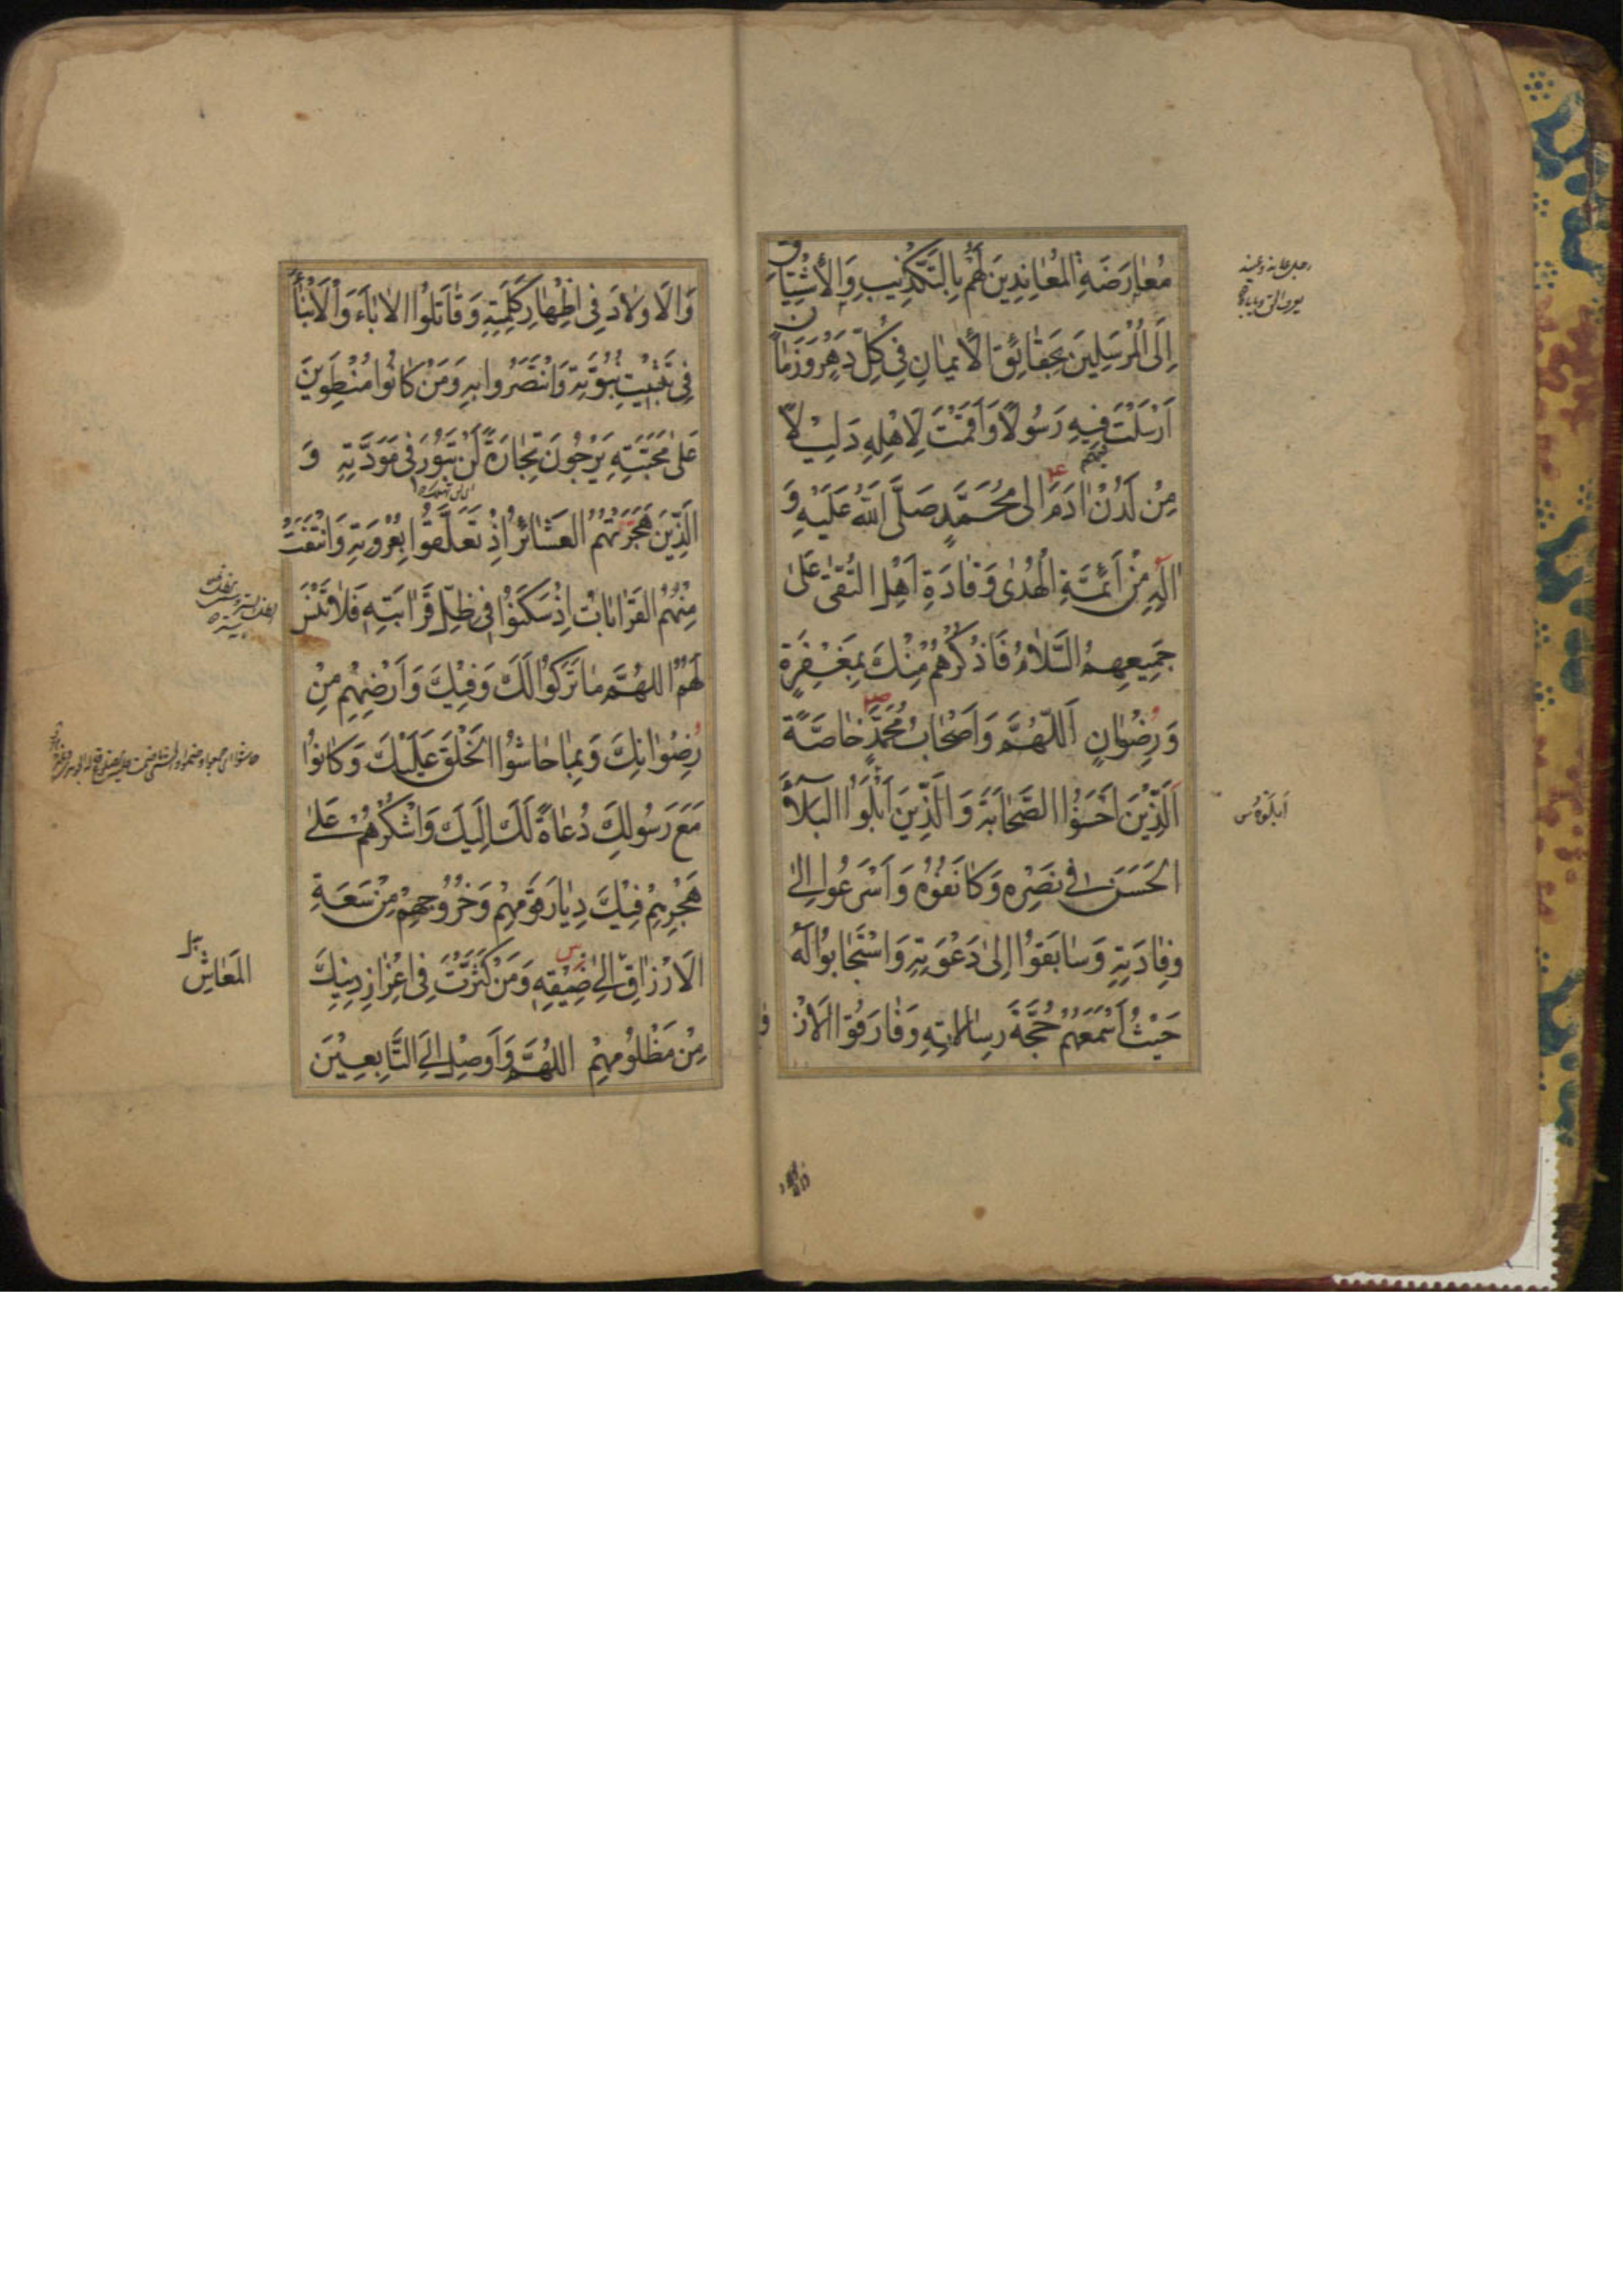 مُعَارَضَةِ الْمُعَانِدِينَ لَهُمْ بِالتَّكْذِيبِ وَالْأِشْتِيَاقِ
اِلَى الْمُرْسَلِينَ بِحَقَائِقِ الْأيمَانِ فِي كُلِّ دَهْرٍ وَزَمَانٍ
اَرْسَلْتَ فِيهِ رَسُولًا وَاَقَمْتَ لِاَهْلِهِ دَلِيلًا
مِنْ لَدُنْ اٰدَمَ اِلى مُحَمَّدٍ صَلَّى اللّٰهُ عَلَيْهِ وَ
اٰلِهِ مِنْ اَئِمَّةِ الْهُدٰى وَقَادَةِ اَهْلِ التُّقىٰ عَلىٰ
جَمِيعِهِمُ السَّلَامُ فَاذْكُرْهُمْ مِنْكَ بِمَغْفِرَةٍ
وَرِضْوَانٍ اَللّٰهُمَّ وَاَصْحَابُ مُحَمَّدٍ خَاصَّةً
اَلَّذِينَ اَحْسَنُوا الصَّحَابَةَ وَالَّذِينَ اَبْلَوُا الْبَلَاءَ
الْحَسَنَ فِي نَصْرِهِ وَكَانَفُوهُ وَاَسْرَعُوا اِلىٰ
وِفَادَتِهِ وَسَابَقُوا اِلىٰ دَعْوَتِهِ وَاسْتَجَابُوا لَهُ
حَيْثُ اَسْمَعَهُمْ حُجَّةَ رِسَالَاتِهِ وَفَارَقُوا الْاَزْوَاجَ
وَالْاَوْلَادَ فِي اِظْهَارِ كَلِمَتِهِ وَقَاتَلُوا الْاٰبَاءَ وَالْاَبْنَاءَ
فِي تَثْبِيتِ نُبُوَّتِهِ وَانْتَصَرُوا بِهِ وَمَنْ كَانُوا مُنْطَوِينَ
عَلىٰ مَحَبَّتِهِ يَرْجُونَ تِجَارَةً لَنْ تَبُورَ فِي مَوَدَّتِهِ وَ
الَّذِينَ هَجَرَتْهُمُ الْعَشَائِرُ اِذْ تَعَلَّقُوا بِعُرْوَتِهِ وَانْتَفَتْ
مِنْهُمُ الْقَرَابَاتُ اِذْ سَكَنُوا فِي ظِلِّ قَرَابَتِهِ فَلَا تَنْسَ
لَهُمُ اللّٰهُمَّ مَا تَرَكُوا لَكَ وَفِيكَ وَاَرْضِهِمْ مِنْ
رِضْوَانِكَ وَبِمَا حَاشُوا الْخَلْقَ عَلَيْكَ وَكَانُوا
مَعَ رَسُولِكَ دُعَاةً لَكَ اِلَيْكَ وَاشْكُرْهُمْ عَلىٰ
هَجْرِهِمْ فِيكَ دِيَارَ قَوْمِهِمْ وَخُرُوجِهِمْ مِنْ سَعَةِ
الْاَرْزَاقِ اِلىٰ ضِيْقِهِ وَمَنْ كَثَّرْتَ فِي اِعْزَازِ دِينِكَ
مِنْ مَظْلُومِهِمْ اَللّٰهُمَّ وَاَوْصِلْ اِلَى التَّابِعِيْنَ
الْمَعَاشِ